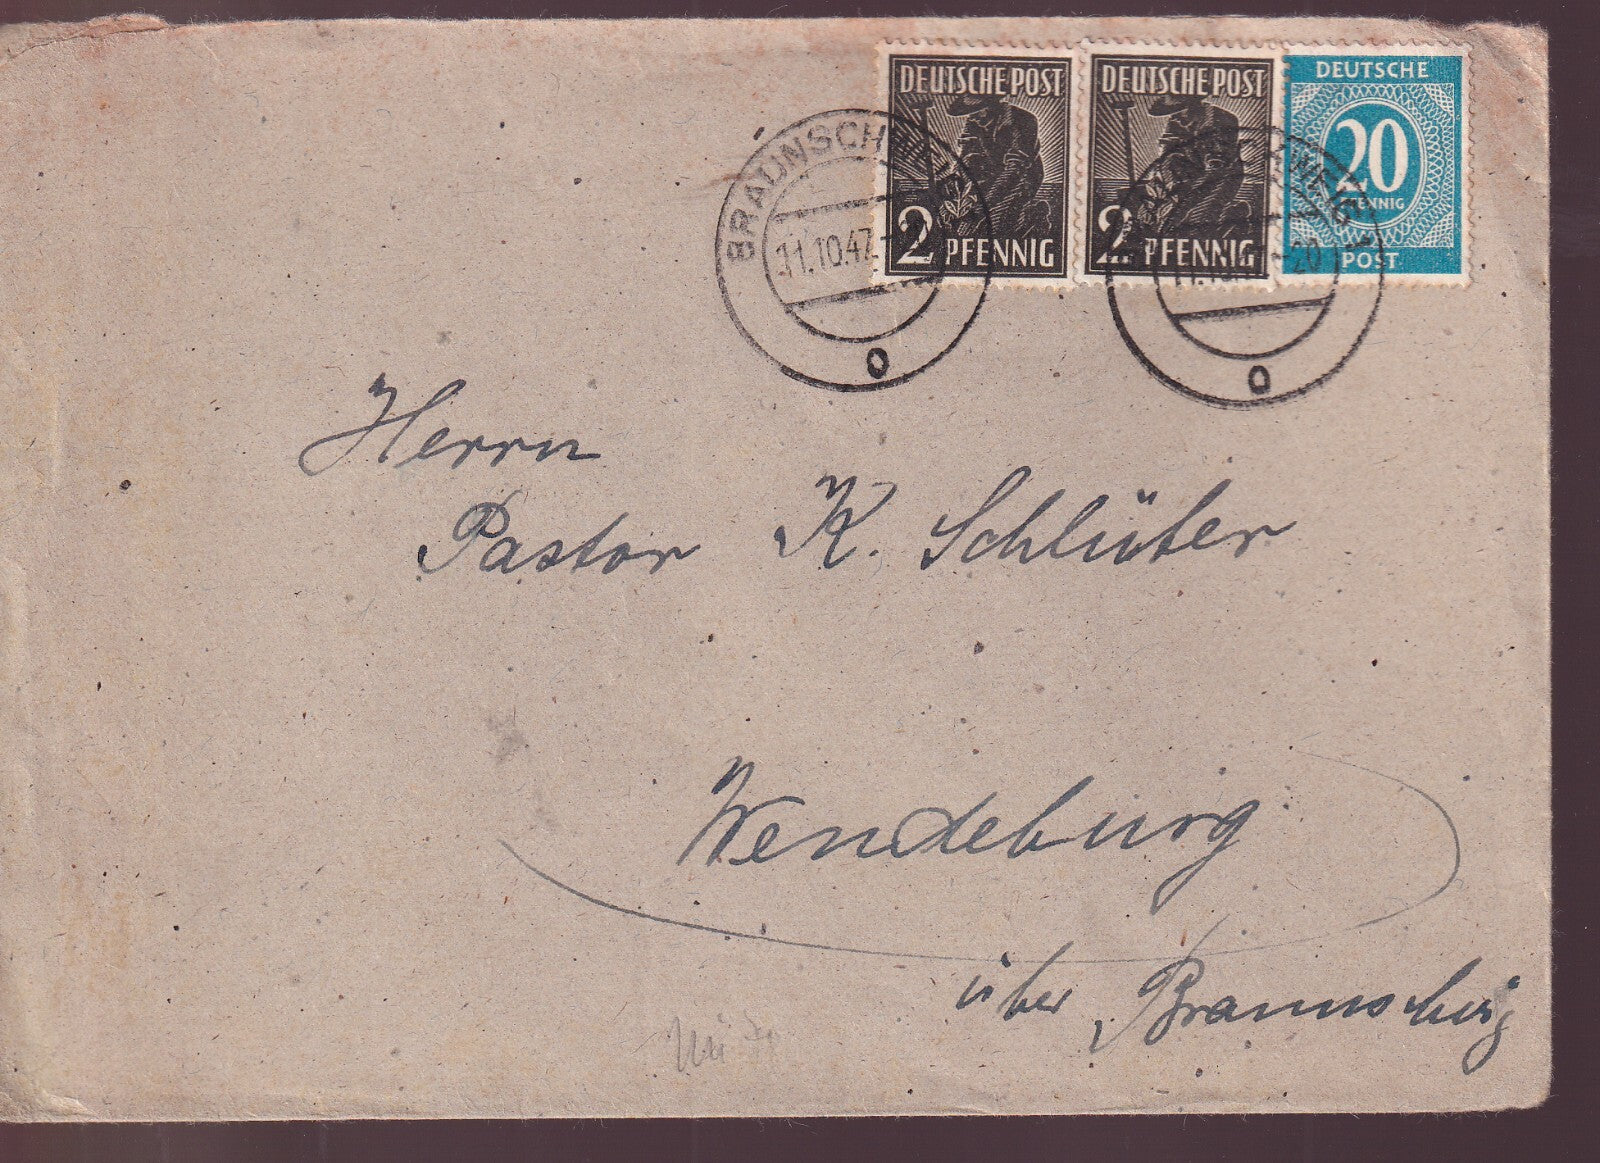 DEUTSCHE POST
2 PFENNIG
DEUTSCHE POST
2 PFENNIG
DEUTSCHE
20
PFENNIG
POST
BRAUNSCHWEIG
11.10.47
o
BRAUNSCHWEIG
-20
o
Herrn
Pastor K. Schlüter
Wendeburg
über Braunschweig